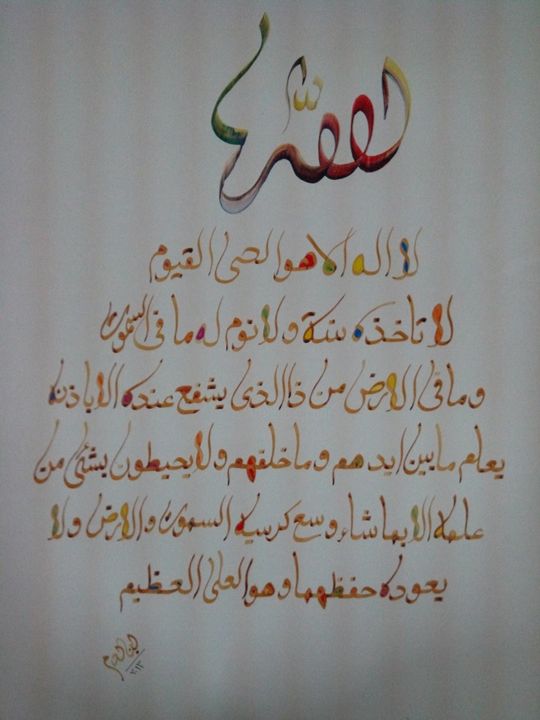 لا اله الا هو الحى القيوم
لا تاخذه سنة ولا نوم له ما فى السموت
وما فى الارض من ذا الذى يشفع عنده الا باذنه
يعلم ما بين ايدهم وما خلفهم ولا يحيطون بشئى من
علمه الا بما شاء وسع كرسيه السموت والارض ولا
يعوده حفظهما وهو العلى العظيم